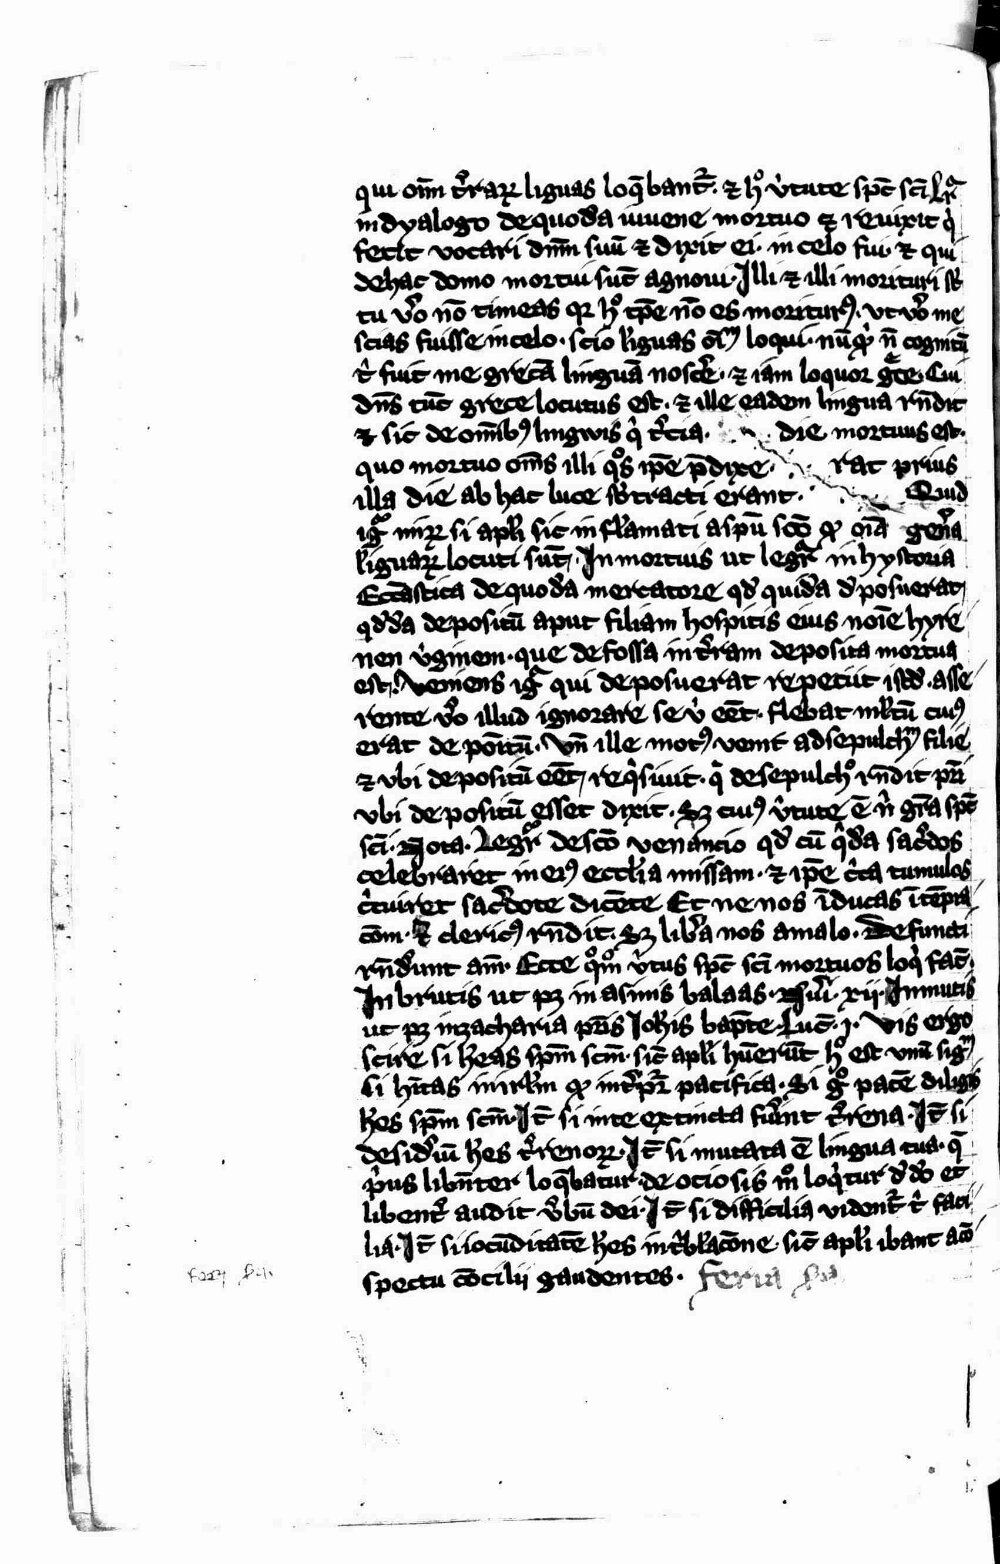 qui om̅ t̉raꝝ liguas loq̅bant᷑. ⁊ hͦ v̉tute sp̅c sc̅i lr̅
in dyalogo de quodā iuuene mortuo ⁊ reuixit q̇
fecit vocari dn̅m suū ⁊ dixit ei. in celo fui. ⁊ qui
de hac domo mortui su̅t agnoui. Illi ⁊ illi morituri st̅
tu v̉o no̅ timeas qꝛ hͦ tp̅e no̅ es moriturꝰ. vt v̉o me
scias fuisse in celo. scio liguas om̅s loqui. nu̅q̇ n̅ cognitū
t̉ fuit me grecā linguā nosce̅. ⁊ iam loquor g̅ce. Cui
dn̅s tu̅c grece locutus est. ⁊ ille eadem lingua rn̅dit
⁊ sic de om̅ibꝰ lingwis q̇ t̉cia. die mortuus est.
quo mortuo om̅s illi qͦs ip̅e p̅dixe rat prius
illa die ab hac luce sb̅tracti erant. Quid
igͦ miꝝ si apl̅i sic inflamati a sp̅u sc̅o ꝑ oi̅a gen̉a
liguaꝝ locuti su̅t. In mortuis ut legi᷑ in hystoria
Eccl̅astica de quodā mercatore qd̅ quidā d̉posuerat
qd̅dā depositū aput filiam hospitis eius noi̅e hyre
nen v̉ginem. que de fossa in t̉ram deposita mortua
est. Veniens igͥ qui deposuerat repetiit istd̅. asse
rente v̉o illud ignorare se v̉ ee̅t. flebat ml̅tū cuiꝰ
erat depoi̅tū. Vn̅ ille motꝰ venit ad sepulchꝝ filie
⁊ vbi depositū ee̅t, req̇siuit. q̇ de sepulchͦ rn̅dit pr̅i
vbi depositū esset dixit. Sꝫ cuiꝰ v̉tute e̅ n̉ gr̅a sp̅c
sc̅i. Nota. Legi᷑ de sc̅o venancio qd̅ cū q̇dā sac̉dos
celebraret in eiꝰ eccl̅ia missam. ⁊ ip̅e c̉ca tumulos
c̉cuiret sac̉dote dice̅te Et ne nos i̅ducas i̅ te̅pta
co̅m. ⁊ clericꝰ rn̅dit. Sꝫ lib̉a nos a malo. Defuncti
rn̅derunt am̅. Ecce qͦmͦ v̉tus sp̅c sc̅i mortuos loq̇ fac̅.
In brutis ut pꝫ in asinis balaas. Nu̅i. xii. In mutis
ut pꝫ in zacharia pr̅is Ioh̅is bapt̅e. Luc̅. j. Vis ergo
scire si h̅eas sp̅m sc̅m. sic̅ apl̅i hu̅eru̅t hͦ est vnu̅ sigͫ
si h̅itas in irl̅m ꝑ int̉pr̅ pacifica. Si gͦ pace̅ diligis
h̅es sp̅m sc̅m. It̅ si in te extincta fu̅int t̉rena. It̅ si
desid̉iū h̅es t̉renoꝝ. It̅ si mutata e̅ lingua tua. q̅
p̉us libe̅nter loq̅batur de ociosis mͦ loq̇tur d̉ d̅o et
libent̉ audit v̉bū dei. It̅ si difficilia vident᷑ t̉ faci
lia. It̅ si iocu̅ditate̅ h̅es in t̉bl̅ac̅one. sic̅ apl̅i ibant a co̅
spectu co̅cilii gaudentes. feria